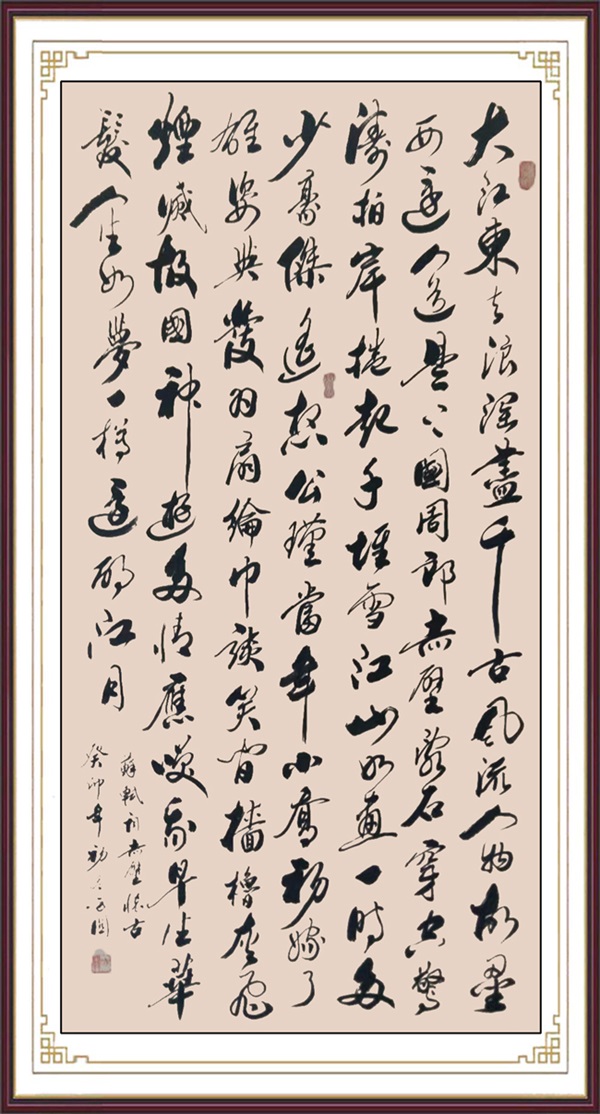 大江東去浪淘盡千古風流人物故壘
西邊人道是三國周郎赤壁亂石穿空驚
濤拍岸捲起千堆雪江山如畫一時多
少豪傑遙想公瑾當年小喬初嫁了
雄姿英發羽扇綸巾談笑間檣櫓灰飛
煙滅故國神遊多情應笑我早生華
髮人生如夢一樽還酹江月
蘇軾詞赤壁懷古
癸卯年初冬